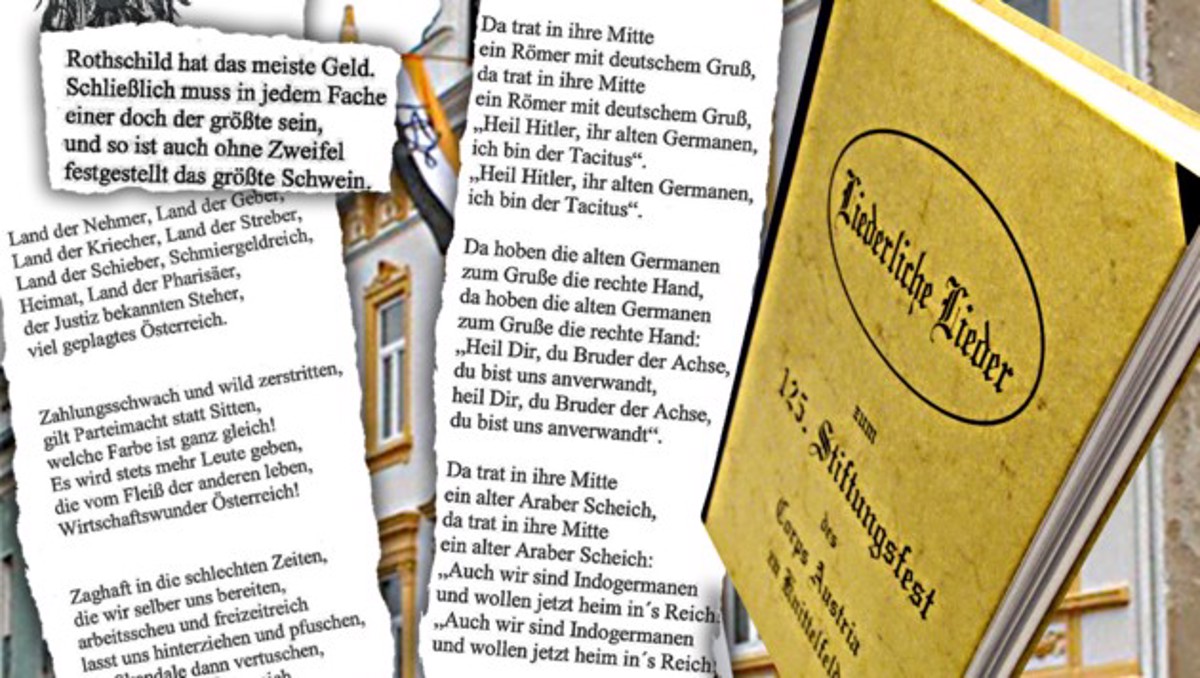 Rothschild hat das meiste Geld.
Schließlich muss in jedem Fache
einer doch der größte sein,
und so ist auch ohne Zweifel
festgestellt das größte Schwein.
Land der Nehmer, Land der Geber,
Land der Kriecher, Land der Streber,
Land der Schieber, Schmiergeldreich,
Heimat, Land der Pharisäer,
der Justiz bekannten Steher,
viel geplagtes Österreich.
Zahlungsschwach und wild zerstritten,
gilt Parteimacht statt Sitten,
welche Farbe ist ganz gleich!
Es wird stets mehr Leute geben,
die vom Fleiß der anderen leben,
Wirtschaftswunder Österreich!
Zaghaft in die schlechten Zeiten,
die wir selber uns bereiten,
arbeitsscheu und freizeitreich
lasst uns hinterziehen und pfuschen,
dann vertuschen,
Da trat in ihre Mitte
ein Römer mit deutschem Gruß,
da trat in ihre Mitte
ein Römer mit deutschem Gruß,
„Heil Hitler, ihr alten Germanen,
ich bin der Tacitus“.
„Heil Hitler, ihr alten Germanen,
ich bin der Tacitus“.
Da hoben die alten Germanen
zum Gruße die rechte Hand,
da hoben die alten Germanen
zum Gruße die rechte Hand:
„Heil Dir, du Bruder der Achse,
du bist uns anverwandt,
heil Dir, du Bruder der Achse,
du bist uns anverwandt“.
Da trat in ihre Mitte
ein alter Araber Scheich,
da trat in ihre Mitte
ein alter Araber Scheich:
„Auch wir sind Indogermanen
und wollen jetzt heim in´s Reich
„Auch wir sind Indogermanen
und wollen jetzt heim in´s Reich
Liederliche Lieder
zum
125. Stiftungsfest
des
Corps Austria
zu Knittelfeld